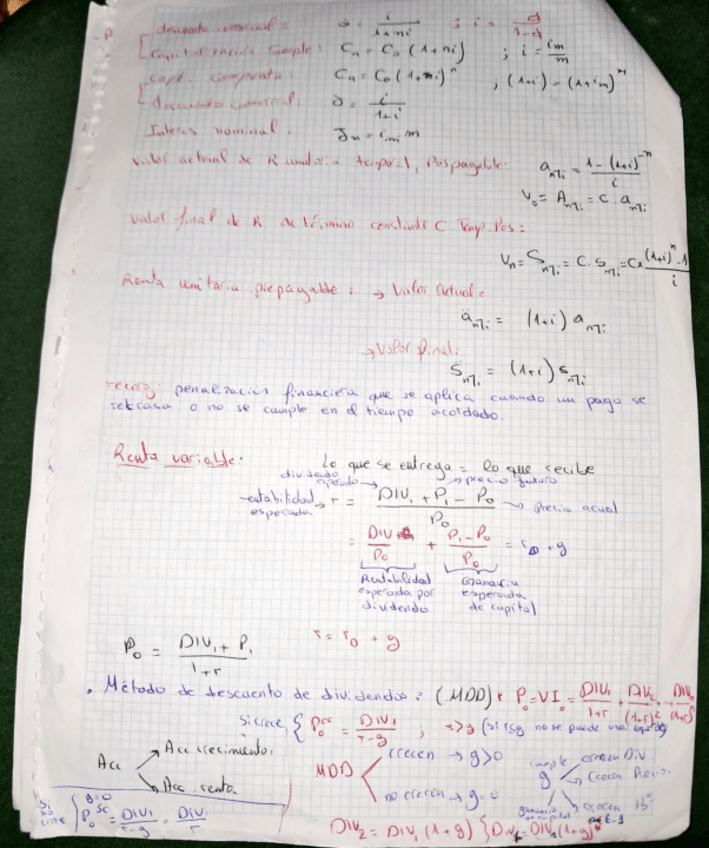 descuento comercial = d = i / 1+ni ; i = d / 1-d
Capitalización Simple: Cn = Co (1+ni) ; i = im / m
Capt. Compuesta: Cn = Co (1+i)^n ; (1+i) = (1+im)^m
descuento comercial: d = i / 1+i
Interés nominal: Jm = im · m
Valor actual de R unitaria temporal, Pospagable: a n┐i = 1-(1+i)^-n / i
Vo = A n┐i = C · a n┐i
Valor final de R de término constante C Temp. Pos:
Vn = S n┐i = C · s n┐i = C x (1+i)^n - 1 / i
Renta unitaria prepagable: → Valor actual:
ä n┐i = (1+i) a n┐i
→ Valor final:
s̈ n┐i = (1+i) s n┐i
penalización financiera que se aplica cuando un pago se
retrasa o no se cumple en el tiempo acordado.
Renta variable: Lo que se entrega = lo que recibe
dividendo esperado → → precio futuro
rentabilidad esperada → r = DIV1 + P1 - P0 / P0 → precio acual
= DIV / P0 + P1 - P0 / P0 = rD + g
Rentabilidad esperada por dividendo
Ganancia esperada de capital
P0 = DIV1 + P1 / 1+r r = rD + g
. Método de descuento de dividendos: (MDD) P0 = VI0 = DIV1 / 1+r + DIV2 / (1+r)² +
Si crece { P0cc = DIV1 / r-g , r>g (si r≤g no se puede usar
Acc → Acc crecimiento.
→ Acc renta.
MDD crecen → g>0
no crecen → g=0
g cumple crecen DIV
crecen Precios.
crecen Bº
Si no crece { g=0 P0sc = DIV1 / r-g = DIV1 / r
DIV2 = DIV1 (1+g) { DIVt = DIV1 (1+g)^t-1